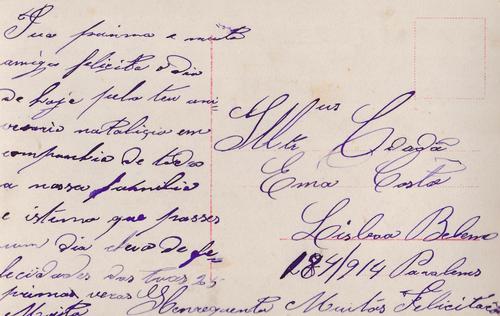 Tua prima e muito
amiga felicita o dia
de hoje pelo teu ani
versario natalicio em
companhia de toda
a nossa familia
e istimo que passes
um dia cheio de fe-
lecidades das tuas 25
primas veras
Muita
Henrequenta
Ema Costa
Lisboa Belem
18-4/914 Parabens
Muitas Felicitaçõ